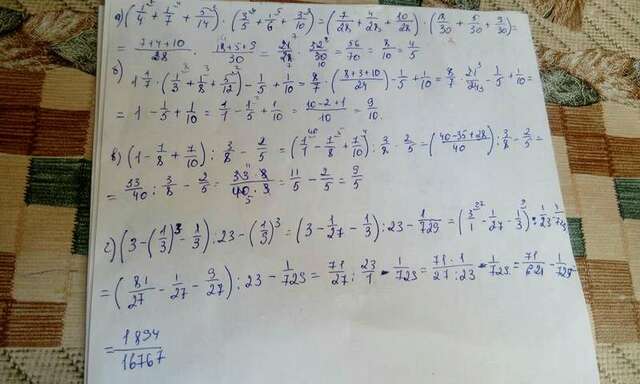 а) (1/4 + 1/7 + 5/14) · (3/5 + 1/6 + 3/10) = (7/28 + 4/28 + 10/28) · (18/30 + 5/30 + 9/30) =
= (7+4+10)/28 · (18+5+9)/30 = 21/28 · 32/30 = 56/70 = 8/10 = 4/5
б) 1 1/7 · (1/3 + 1/8 + 5/12) - 1/5 + 1/10 = 8/7 · (8+3+10)/24 - 1/5 + 1/10 = 8/7 · 21/24 - 1/5 + 1/10 =
= 1 - 1/5 + 1/10 = 1/1 - 1/5 + 1/10 = (10-2+1)/10 = 9/10.
в) (1 - 7/8 + 7/10) : 3/8 - 2/5 = (1/1 - 7/8 + 7/10) : 3/8 - 2/5 = (40-35+28)/40 : 3/8 - 2/5 =
= 33/40 : 3/8 - 2/5 = (33·8)/(40·3) = 11/5 - 2/5 = 9/5
г) (3 - (1/3)³ - 1/3) : 23 - (1/3)³ = (3 - 1/27 - 1/3) : 23 - 1/729 = (3/1 - 1/27 - 1/3) : 1/23
= (81/27 - 1/27 - 9/27) : 23 - 1/729 = 71/27 : 23/1 - 1/729 = (71·1)/(27·23) - 1/729 = 71/621 - 1/729
= 1894/16767